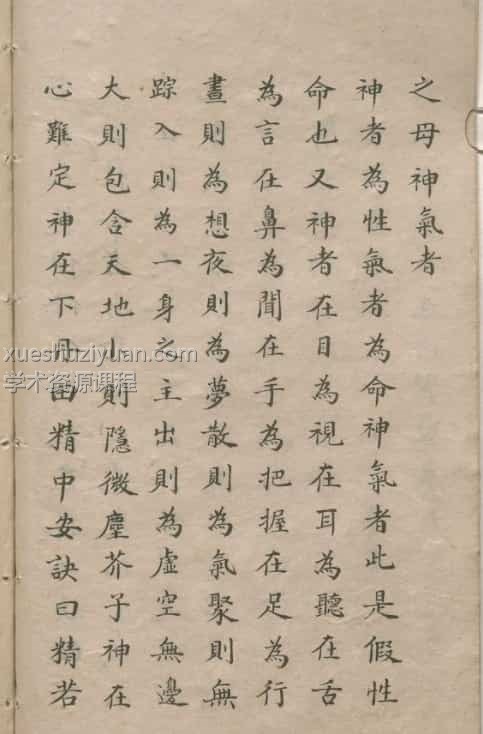 之母神氣者
神者為性氣者為命神氣者此是假性
命也又神者在目為視在耳為聽在舌
為言在鼻為聞在手為把握在足為行
晝則為想夜則為夢散則為氣聚則無
踪入則為一身之主出則為虛空無邊
大則包含天地小則隱微塵芥子神在
心難定神在下丹田精中安訣曰精若
xueshuziyuan.com
学术资源课程